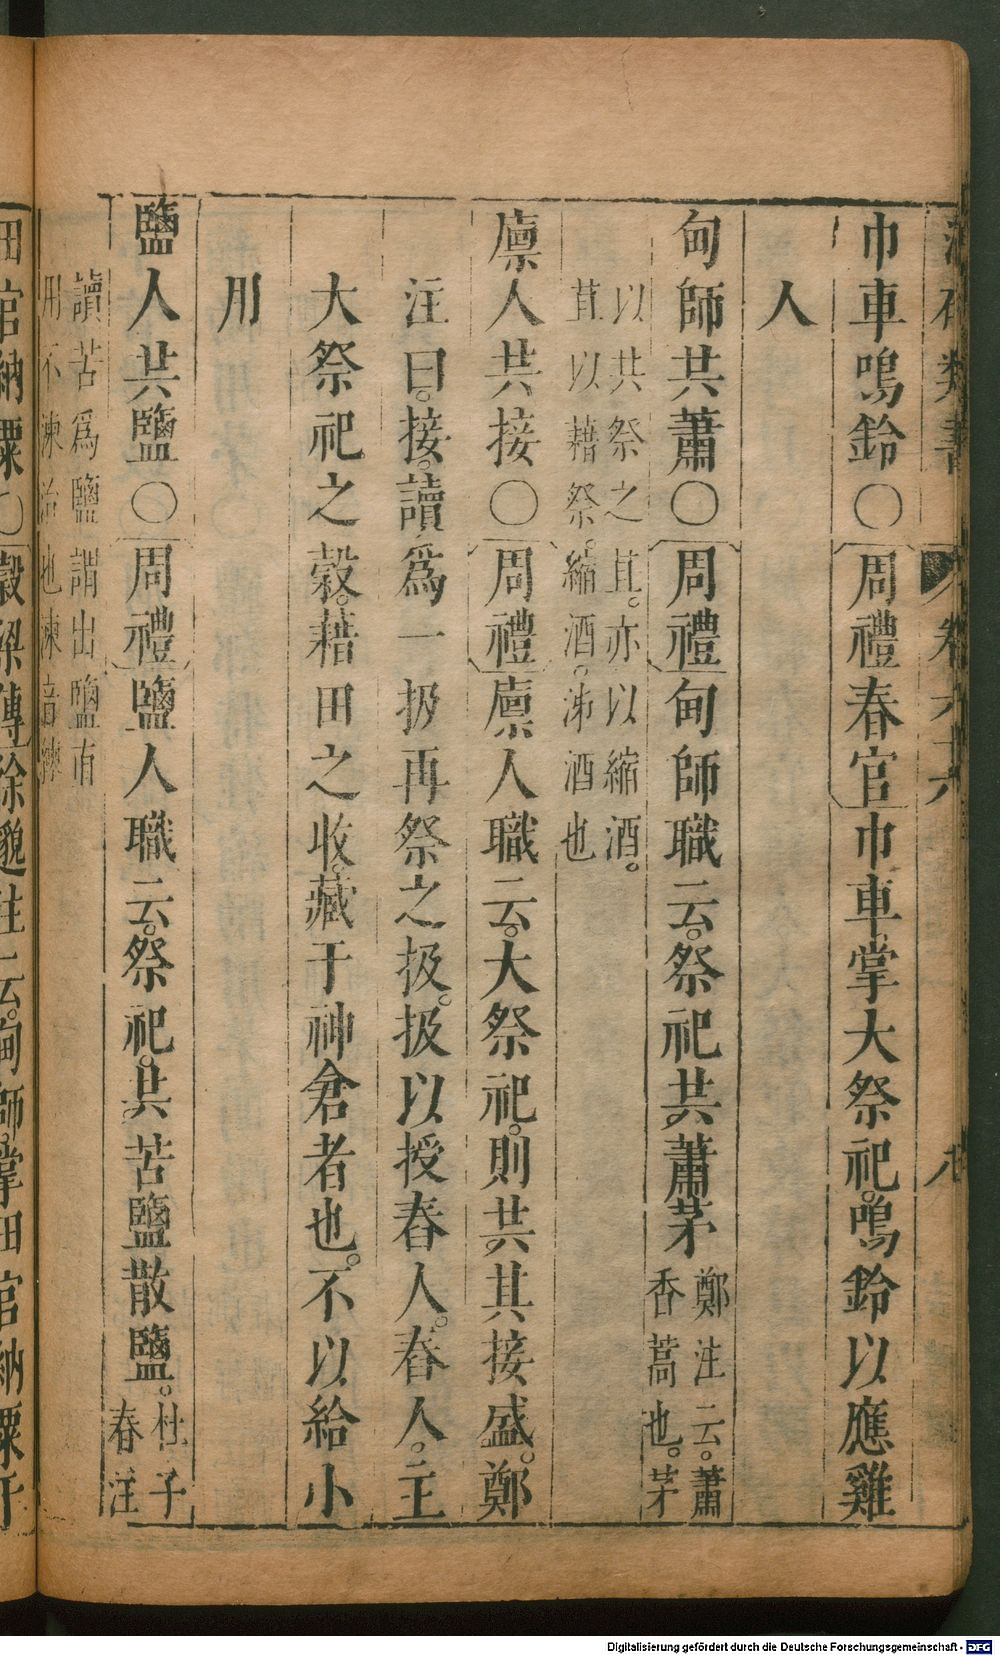 類書 卷六十六 八
巾車鳴鈴〇周禮春官巾車掌大祭祀。鳴鈴以應雞
人
甸師共蕭〇周禮甸師職云。祭祀共蕭茅
鄭注云。蕭
香蒿也。茅
以共祭之苴。亦以縮酒。
苴以藉祭。縮酒。泲酒也
廩人共接〇周禮廩人職云。大祭祀。則共其接盛。鄭
注曰。接。讀爲一扱再祭之扱。扱以授舂人。舂人。主
大祭祀之穀。藉田之收。藏于神倉者也。不以給小
用
鹽人共鹽〇周禮鹽人職云。祭祀。共苦鹽散鹽。
杜子
春注
讀苦爲鹽謂出鹽直
用不涷治也涷音練
田官納粟〇穀梁傳徐邈註云。甸師。掌田官納粟于
Digitalisierung gefördert durch die Deutsche Forschungsgemeinschaft - DFG